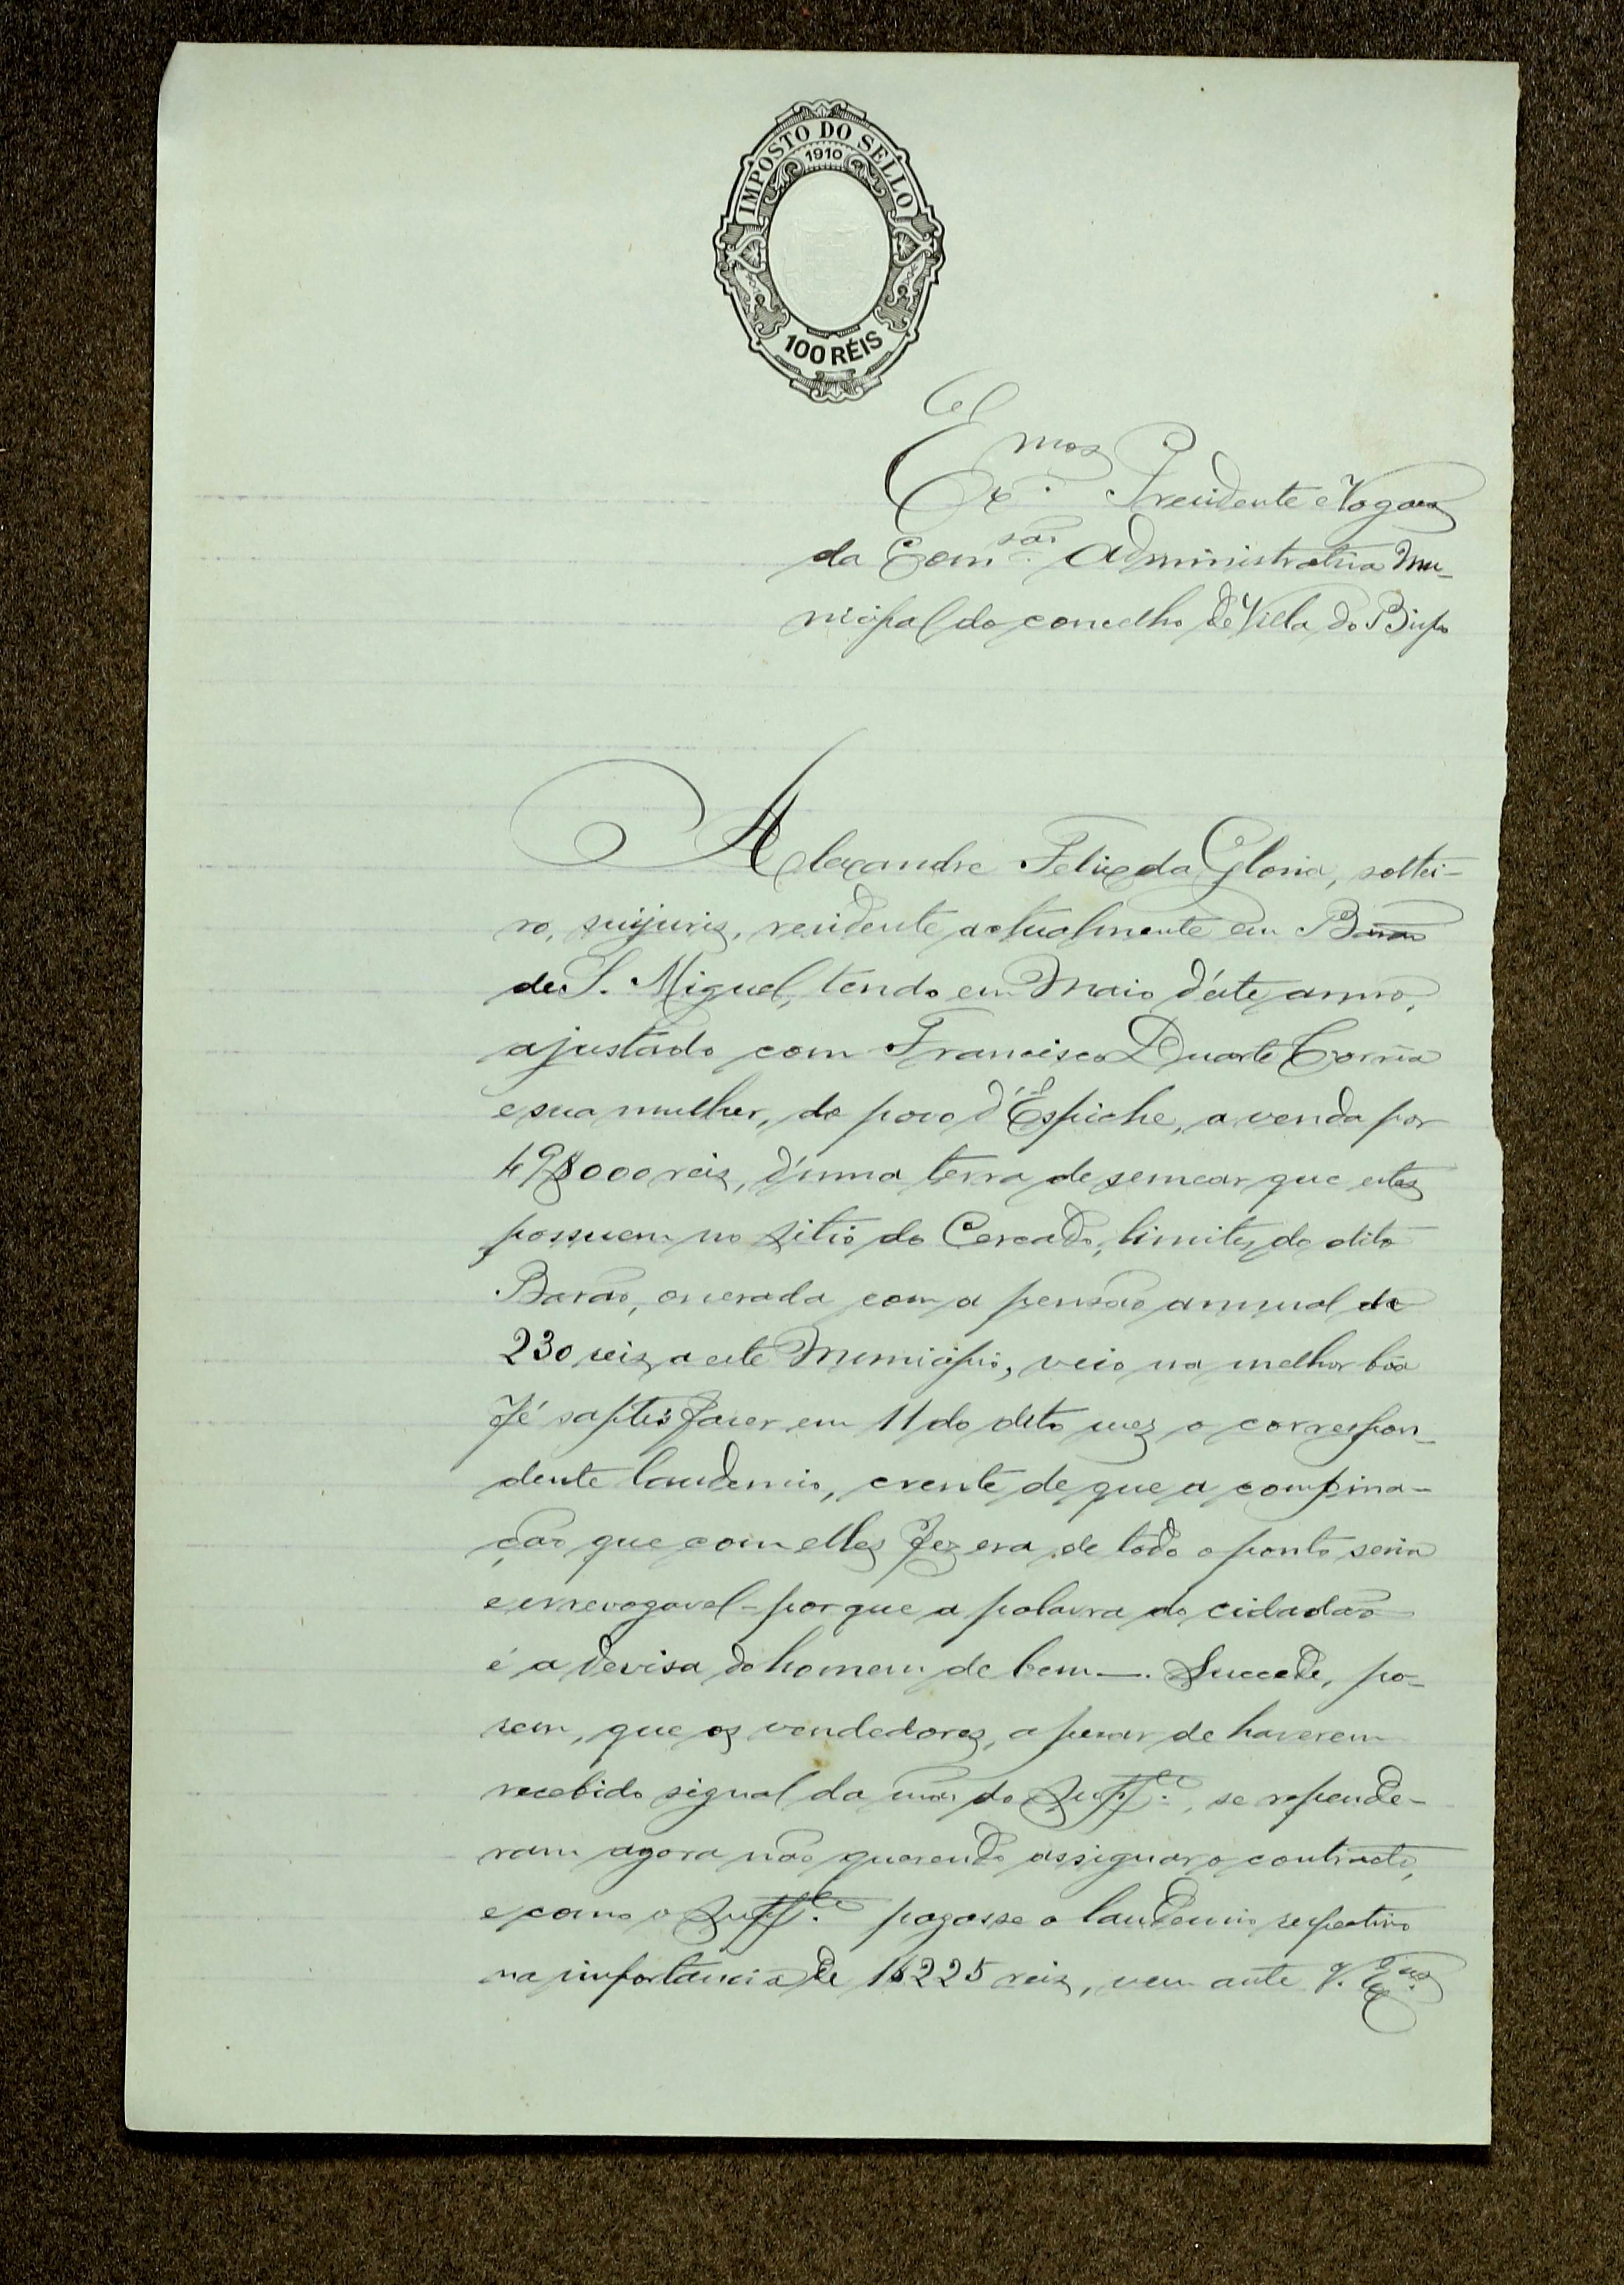 IMPOSTO DO SELLO
1910
100 RÉIS
Ex.mos Presidente e Vogaes
da Com.são Administrativa Mu-
nicipal do concelho de Villa do Bispo
Alexandre Felix da Gloria, soltei-
ro, suijuris, residente actualmente em Barão
de S. Miguel, tendo em Maio d'éste anno,
ajustado com Francisco Duarte Corrêa
e sua mulher, do povo d'Espiche, a venda por
49$000 reis, d'uma terra de semear que estes
possuem no sitio do Cercado, limites do dito
Barão, onerada com a pensão annual de
230 reis a este Municipio, veio na melhor bôa
fé satisfazer em 11 do dito mez o correspon-
dente laudemio, crente de que a combina-
ção que com elles fez era de todo o ponto seria
e irrevogavel - porque a palavra do cidadão
é a devisa do homem de bem -. Succede, po-
rem, que os vendedores, apezar de haverem
recebido signal da mão do Supp.te, se repende-
ram agora não querendo assignar o contracto,
e como o Supp.te pagasse o laudemio respectivo
na importancia de 1$225 reis, vem ante V. Ex.as